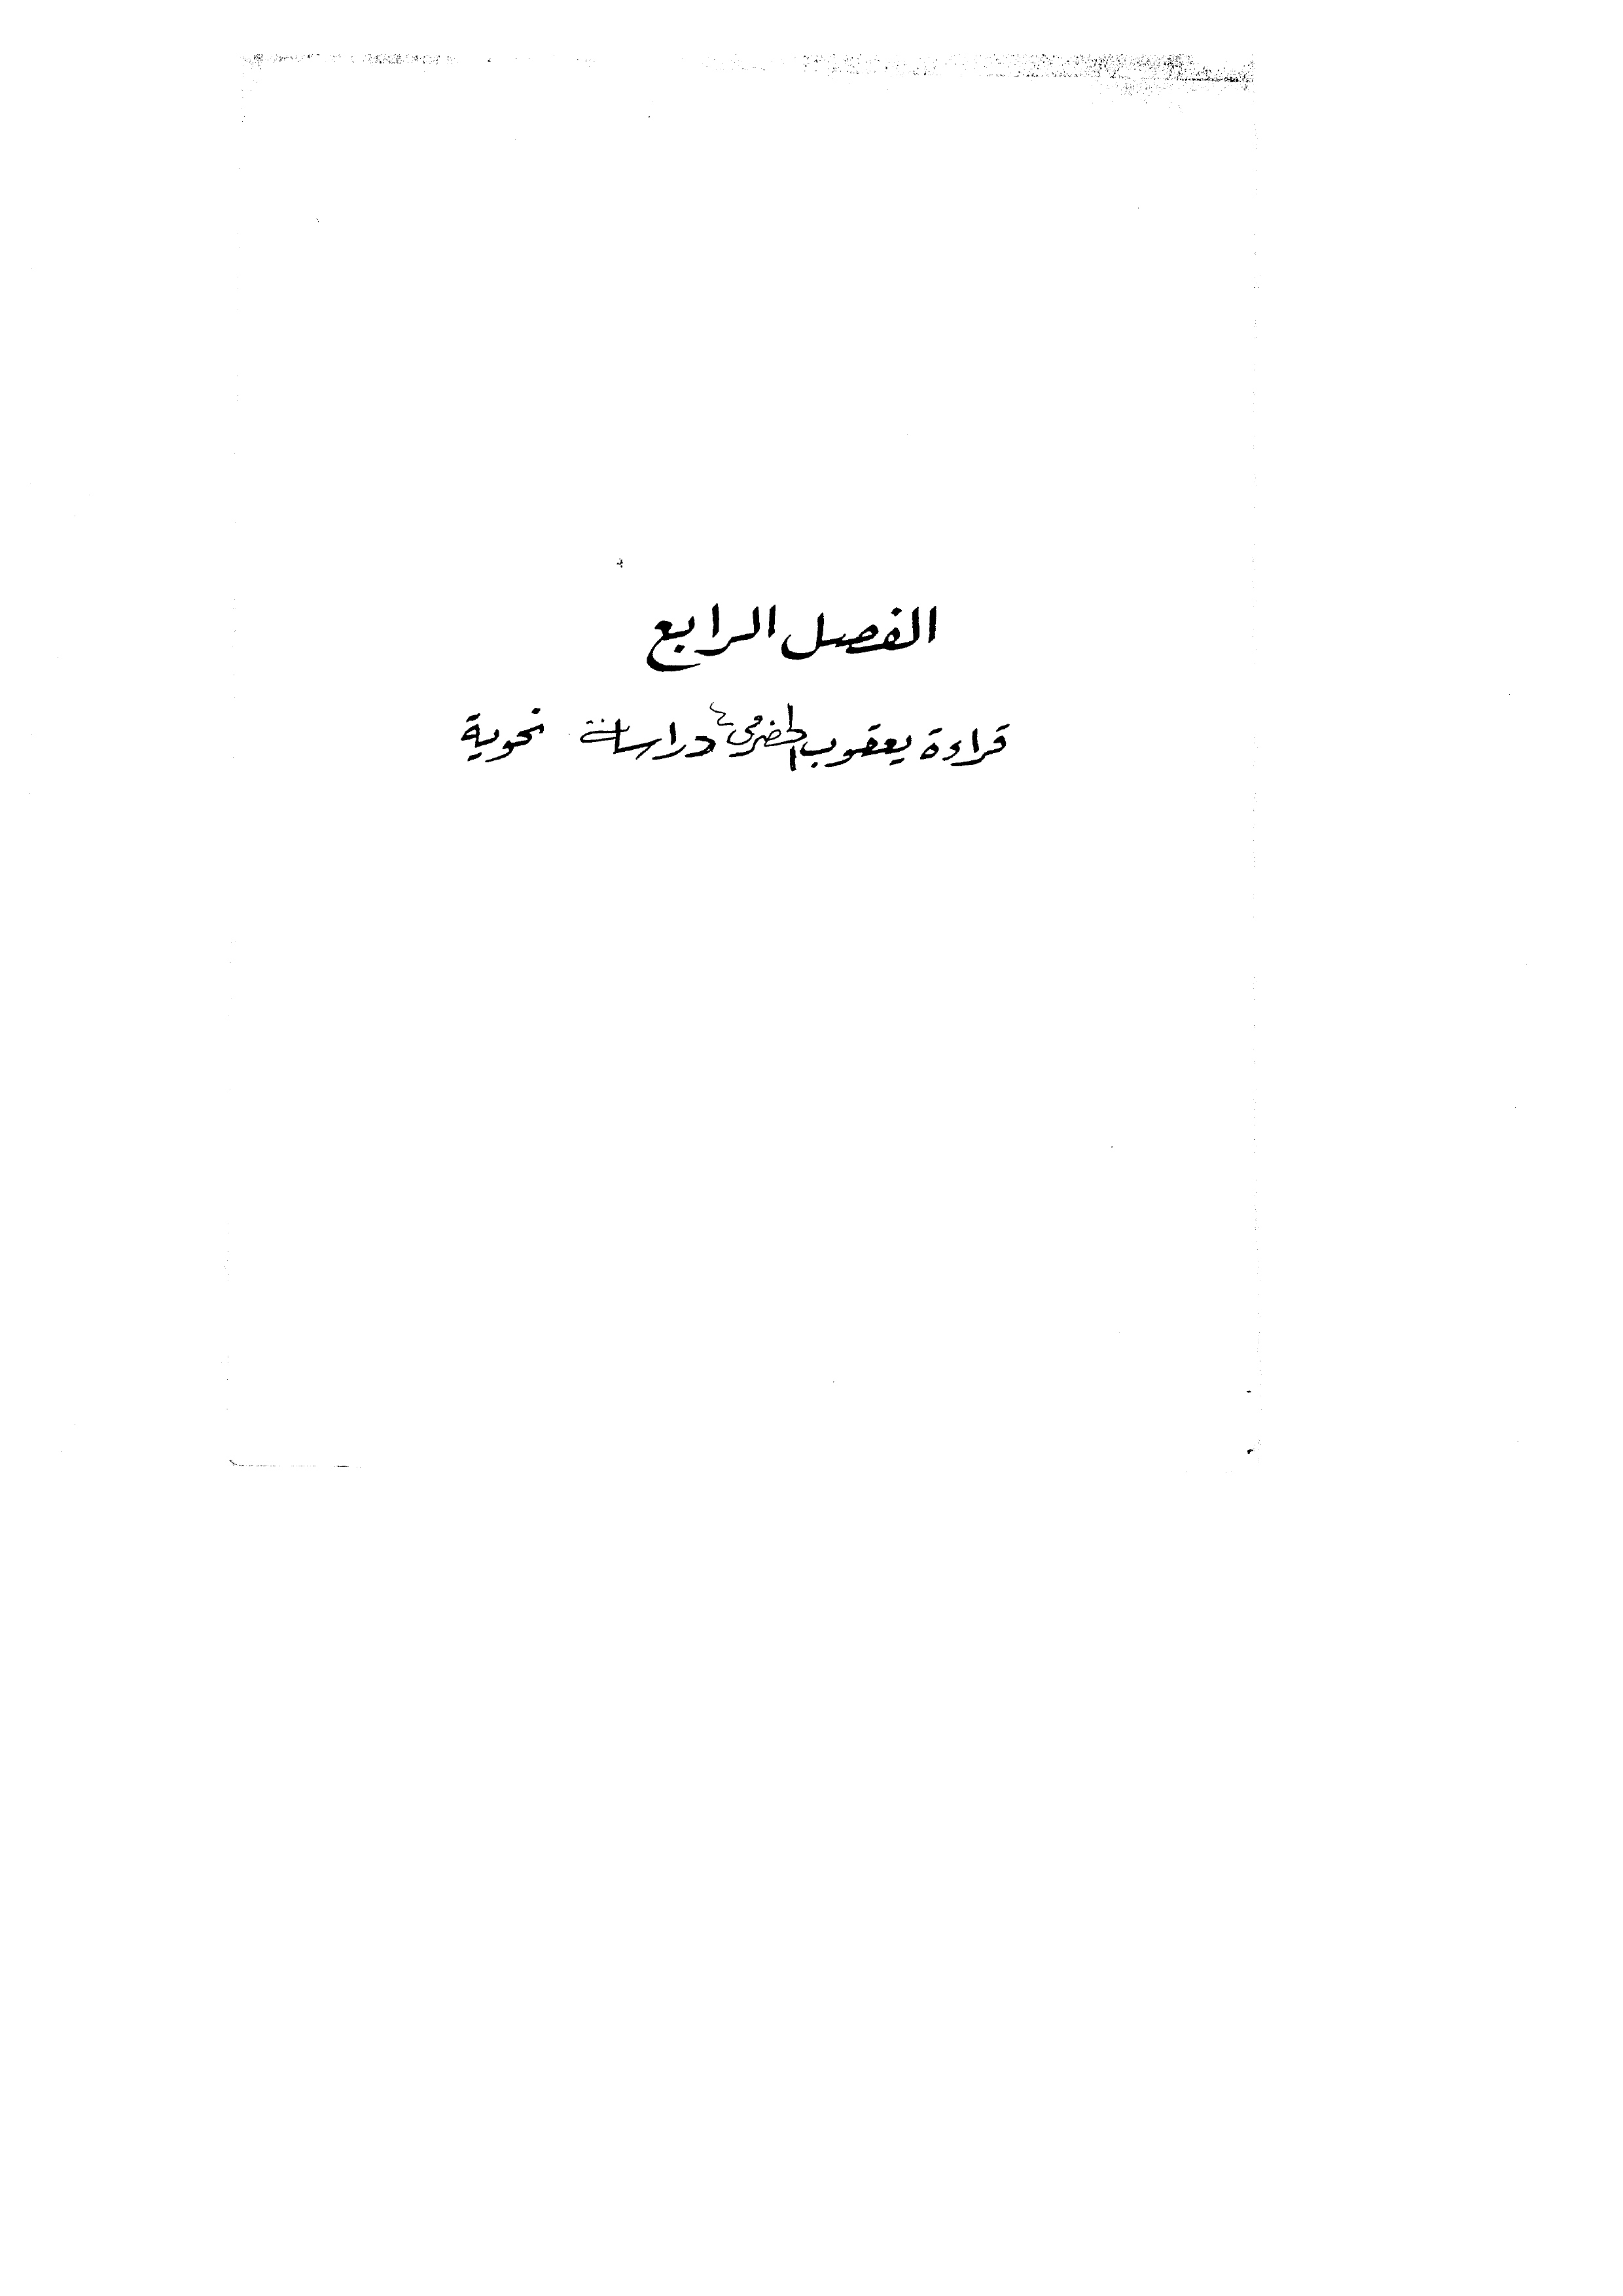 الفصل الرابع
قراءة يعقوب الحضرمي دراسة نحوية